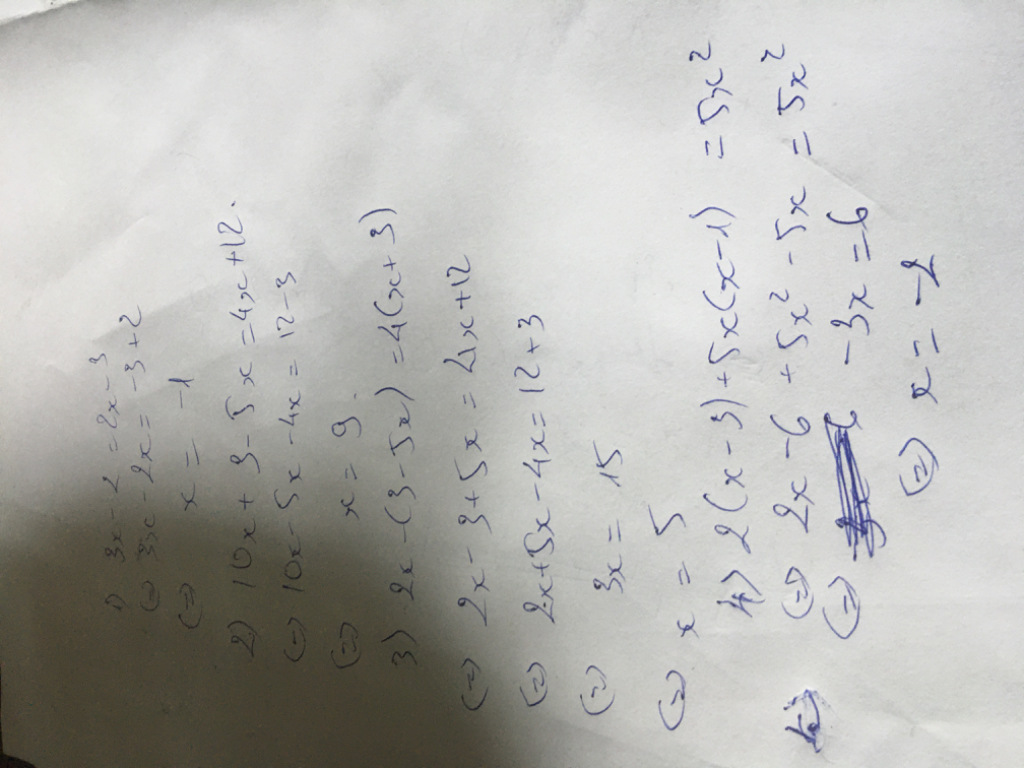 1) 3x - 2 = 2x - 3
(=) 3x - 2x = -3 + 2
(=) x = -1
2) 10x + 3 - 5x = 4x + 12.
(=) 10x - 5x - 4x = 12 - 3
(=) x = 9.
3) 2x - (3 - 5x) = 4(x + 3)
(=) 2x - 3 + 5x = 4x + 12
(=) 2x + 5x - 4x = 12 + 3
(=) 3x = 15
(=) x = 5
4) 2(x - 3) + 5x(x - 1) = 5x²
(=) 2x - 6 + 5x² - 5x = 5x²
(=) -3x = 6
(=) x = -2